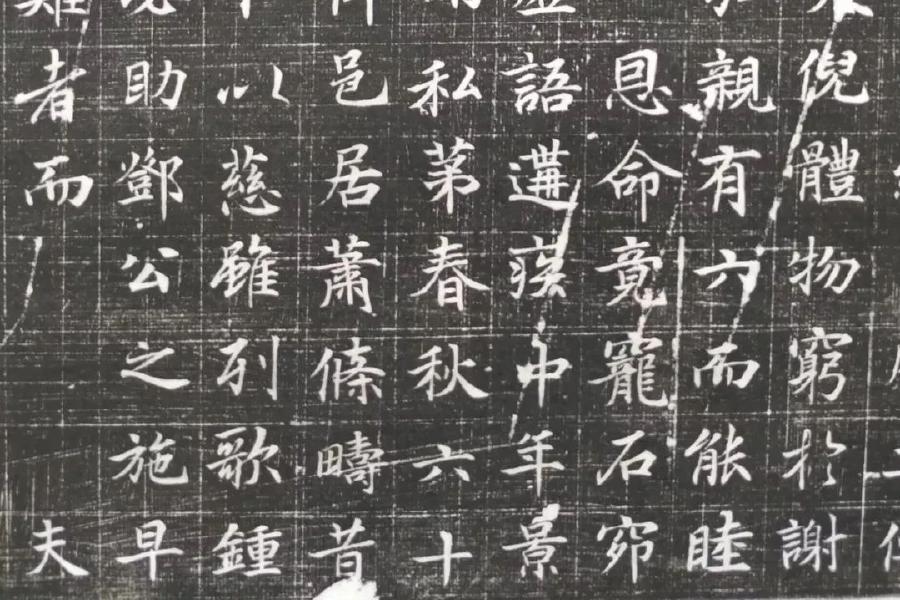 倪體物窮於謝
親有六而能睦
恩命竟寵石窌
語遘疾中年景
私苐春秋六十
邑居蕭條疇昔
以慈雖列歌鍾
助鄧公之施早
者而 夫